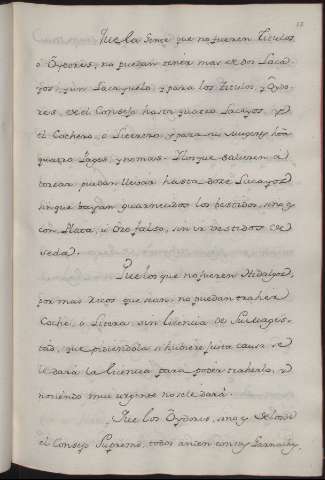 Que la Gente que no fueren Titulos
ô Oydores, no puedan tener mas de dos Laca-
yos, y un Lacayuelo, y para los titulos, y Oydo-
res, de el Consejo hasta quatro Lacayos, y
el Cochero, o Literero, y para sus Mugeres
quatro Pages, y no mas. Y los que salieren à
torear puedan llevar hasta doze Lacayos
sin que vayan guarnecidos los vestidos, sino
con Plata, u Oro falso, sin ir vestidos de
seda.
Que los que no fueren Hidalgos,
por mas ricos que sean, no puedan traher
Coche, o Litera sin licencia de Su Mages-
tad, que pidiendola si hubiere justa causa se
le dará la licencia para poder traherlo, y
no siendo muy urgente no se le dará.
Que los Oydores, sino de
el Consejo Supremo, todos anden con sus Garnachas,